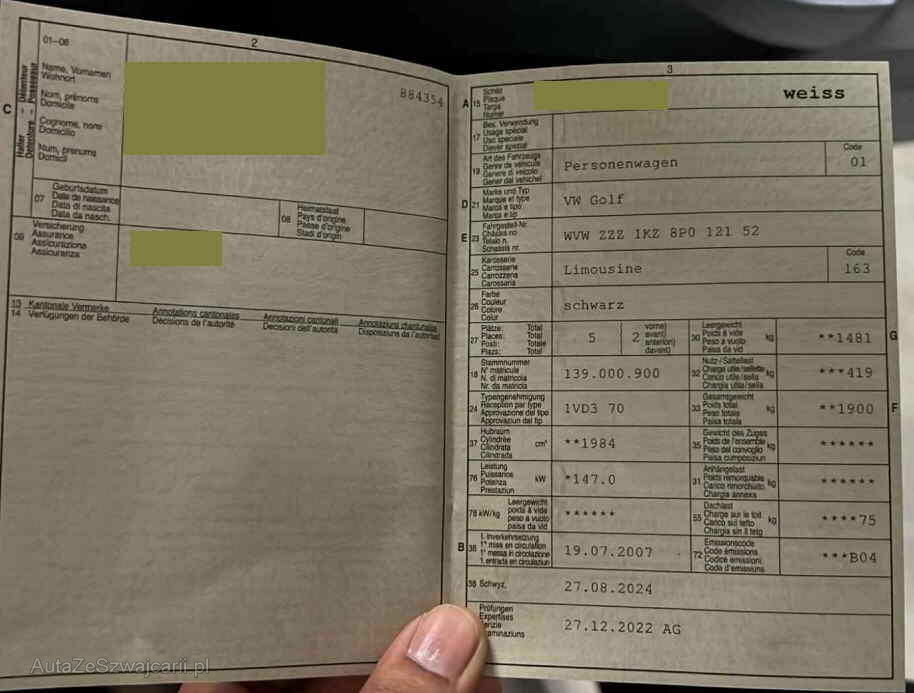 2
01–06
Name, Vornamen
Wohnort
Nom, prénoms
Domicile
Cognome, nomi
Domicilio
Num, prenums
Domicil
Halter Détenteur
Detentore Possessur
C
884354
07
Geburtsdatum
Date de naissance
Data di nascita
Data da nasch.
08
Heimatstaat
Pays d'origine
Paese d'origine
Stadi d'origin
09
Versicherung
Assurance
Assicurazione
Assicuranza
13 Kantonale Vermerke Annotations cantonales Annotazioni cantonali Annotaziuns chantunalas
14 Verfügungen der Behörde Décisions de l'autorité Decisioni dell'autorità Disposiziuns da l'autoritad
3
A 15
Schild
Plaque
Targa
Numer
weiss
17
Bes. Verwendung
Usage spécial
Uso speciale
Diever spezial
19
Art des Fahrzeugs
Genre de véhicule
Genere di veicolo
Gener dal vehichel
Personenwagen
Code
01
D 21
Marke und Typ
Marque et type
Marca e tipo
Marca e tip
VW Golf
E 23
Fahrgestell-Nr.
Châssis no
Telaio n.
Schassis nr.
WVW ZZZ 1KZ 8P0 121 52
25
Karosserie
Carrosserie
Carrozzeria
Carossaria
Limousine
Code
163
26
Farbe
Couleur
Colore
Colur
schwarz
27
Plätze: Total
Places: Total
Posti: Totale
Plazs: Total
5
2
vorne)
avant)
anteriori)
davant)
30
Leergewicht
Poids à vide
Peso a vuoto
Paisa da vid
kg
**1481
G
18
Stammnummer
N° matricule
N. di matricola
Nr. da matricla
139.000.900
32
Nutz-/Sattellast
Charge utile/sellette
Carico utile/sella
Chargia utila/sella
kg
***419
24
Typengenehmigung
Réception par type
Approvazione del tipo
Approvaziun dal tip
1VD3 70
33
Gesamtgewicht
Poids total
Peso totale
Paisa totala
kg
**1900
F
37
Hubraum
Cylindrée
Cilindrata
Cilindrada
cm³
**1984
35
Gewicht des Zuges
Poids de l'ensemble
Peso del convoglio
Paisa cumposiziun
kg
******
76
Leistung
Puissance
Potenza
Prestaziun
kW
*147.0
31
Anhängelast
Poids remorquable
Carico rimorchiato
Chargia annexa
kg
******
78 kW/kg
Leergewicht
poids à vide
peso a vuoto
paisa da vid
******
55
Dachlast
Charge sur le toit
Carico sul tetto
Chargia sin il tetg
kg
****75
B 36
1. Inverkehrsetzung
1re mise en circulation
1a messa in circolazione
1. entrada en circulaziun
19.07.2007
72
Emissionscode
Code émissions
Codice emissioni
Code d'emissiuns
***B04
38 Schwyz,
27.08.2024
Prüfungen
Expertises
27.12.2022 AG
AutaZeSzwajcarii.pl